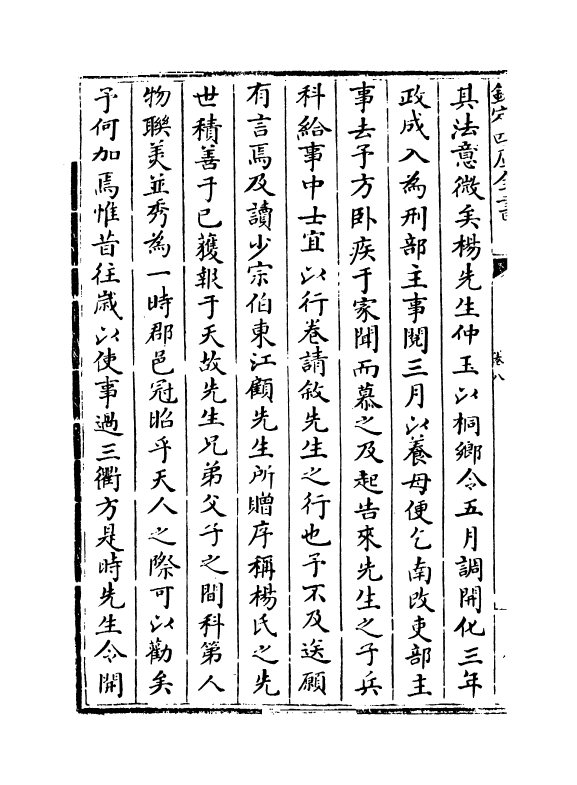 欽定四庫全書
卷八
其法意微矣楊先生仲玉以桐鄉令五月調開化三年
政成入為刑部主事閱三月以養母便乞南改吏部主
事去予方卧疾于家聞而慕之及起告來先生之子兵
科給事中士宜以行卷請敘先生之行也予不及送願
有言焉及讀少宗伯東江顧先生所贈序稱楊氏之先
世積善于已獲報于天故先生兄弟父子之間科第人
物聯美並秀為一時郡邑冠昭乎天人之際可以勸矣
予何加焉惟昔往歲以使事過三衢方是時先生令開